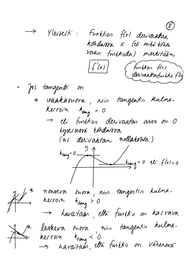 8
→ Yleisesti: Funktion f(x) derivaattaa
kohdassa x (eli mikä tahansa
vaan funktiolla) merkitään
f'(x)
funktion f(x)
derivaattafunktio f'(x)
• Jos tangentti on
* vaakasuora, niin tangentin kulma-
kerroin k_tang = 0
→ eli funktion derivaatan arvo on 0
kyseisessä kohdassa
(ns. derivaatan nollakohta)
y
k_tang = 0
k_tang = 0 eli f'(x) = 0
x
* nouseva suora, niin tangentin kulma-
kerroin k_tang > 0
→ havaitaan, että funktio on kasvava
* laskeva suora, niin tangentin kulma-
kerroin k_tang < 0
→ havaitaan, että funktio on vähenevä